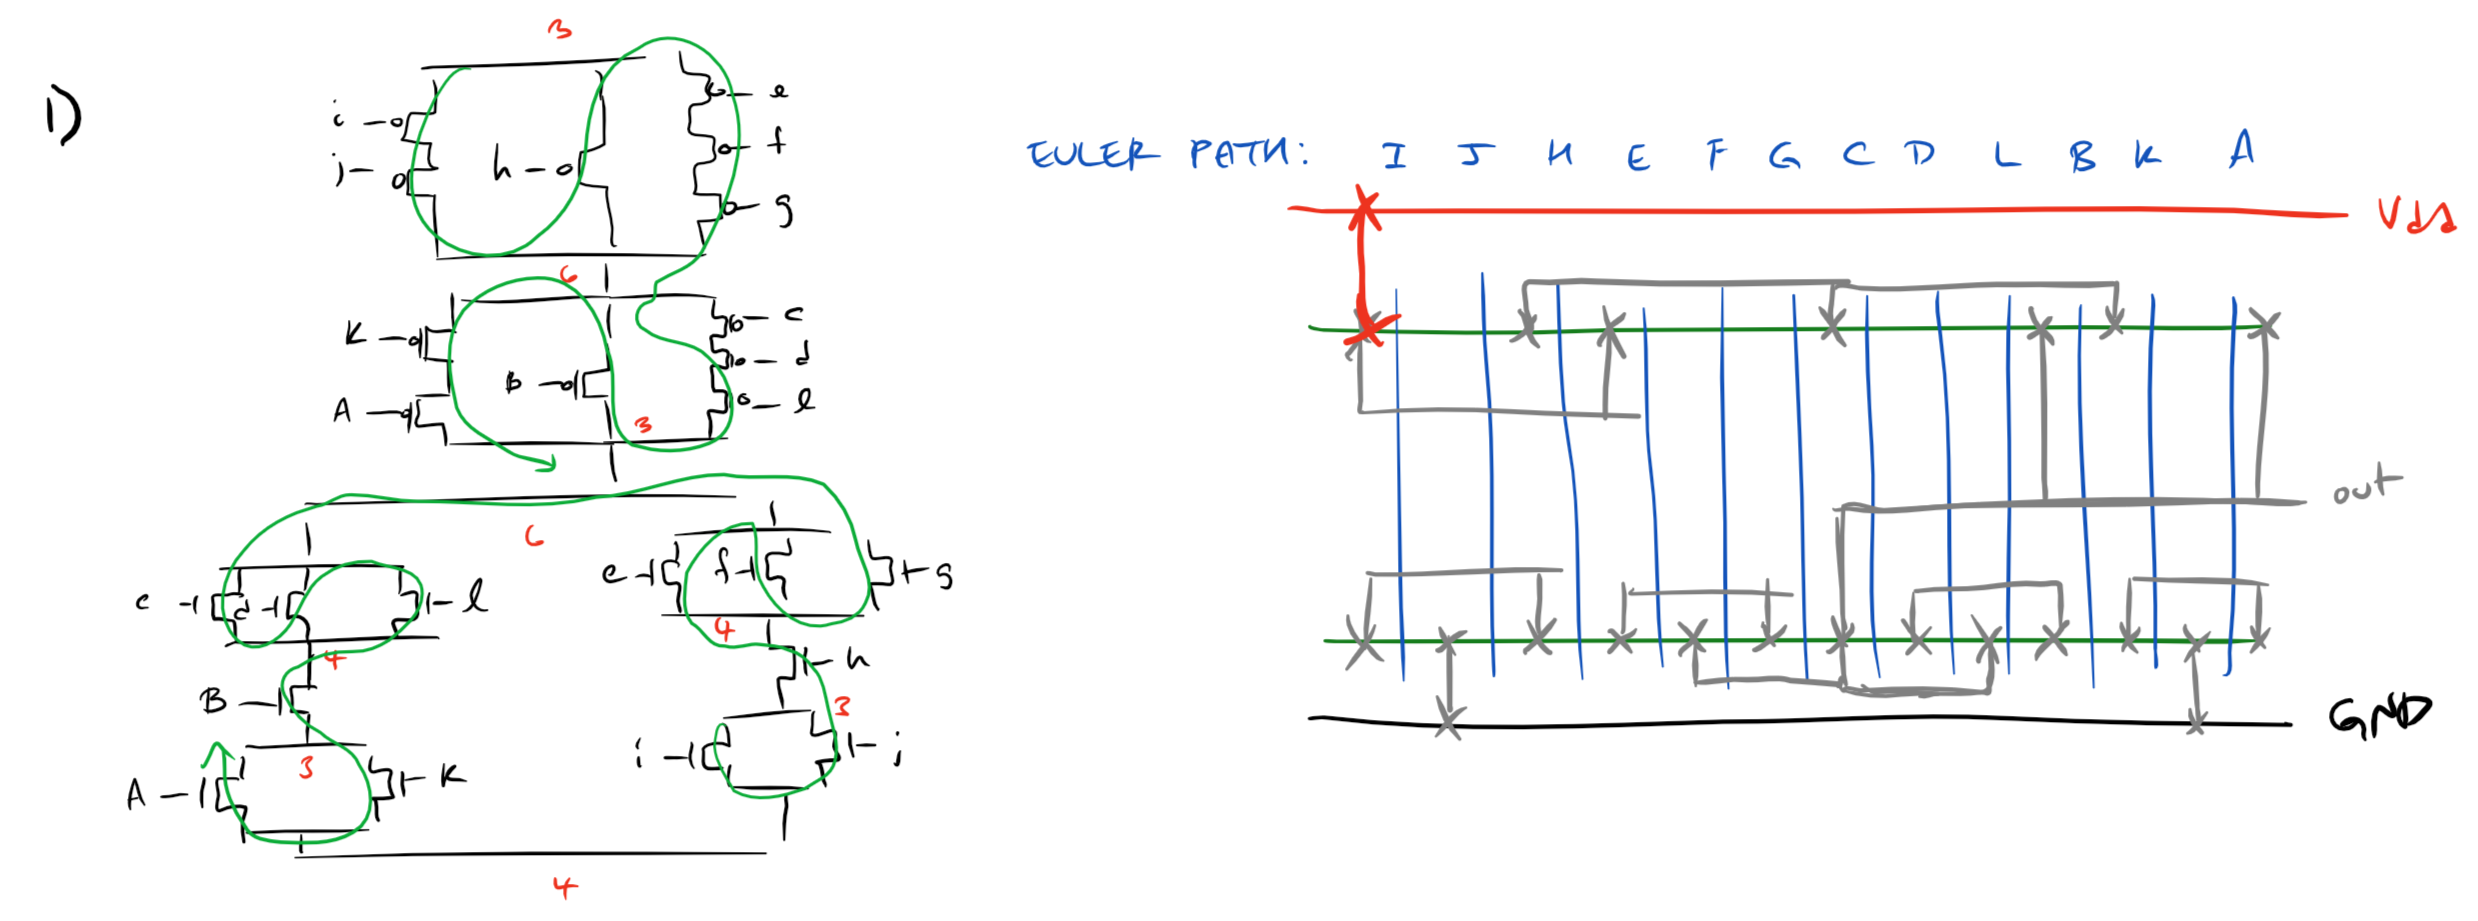 1)
3
i
j
h
e
f
g
6
K
A
B
c
d
l
3
6
c
d
l
e
f
g
4
4
B
h
A
3
K
i
j
3
4
EULER PATH: I J H E F G C D L B K A
Vdd
out
GND